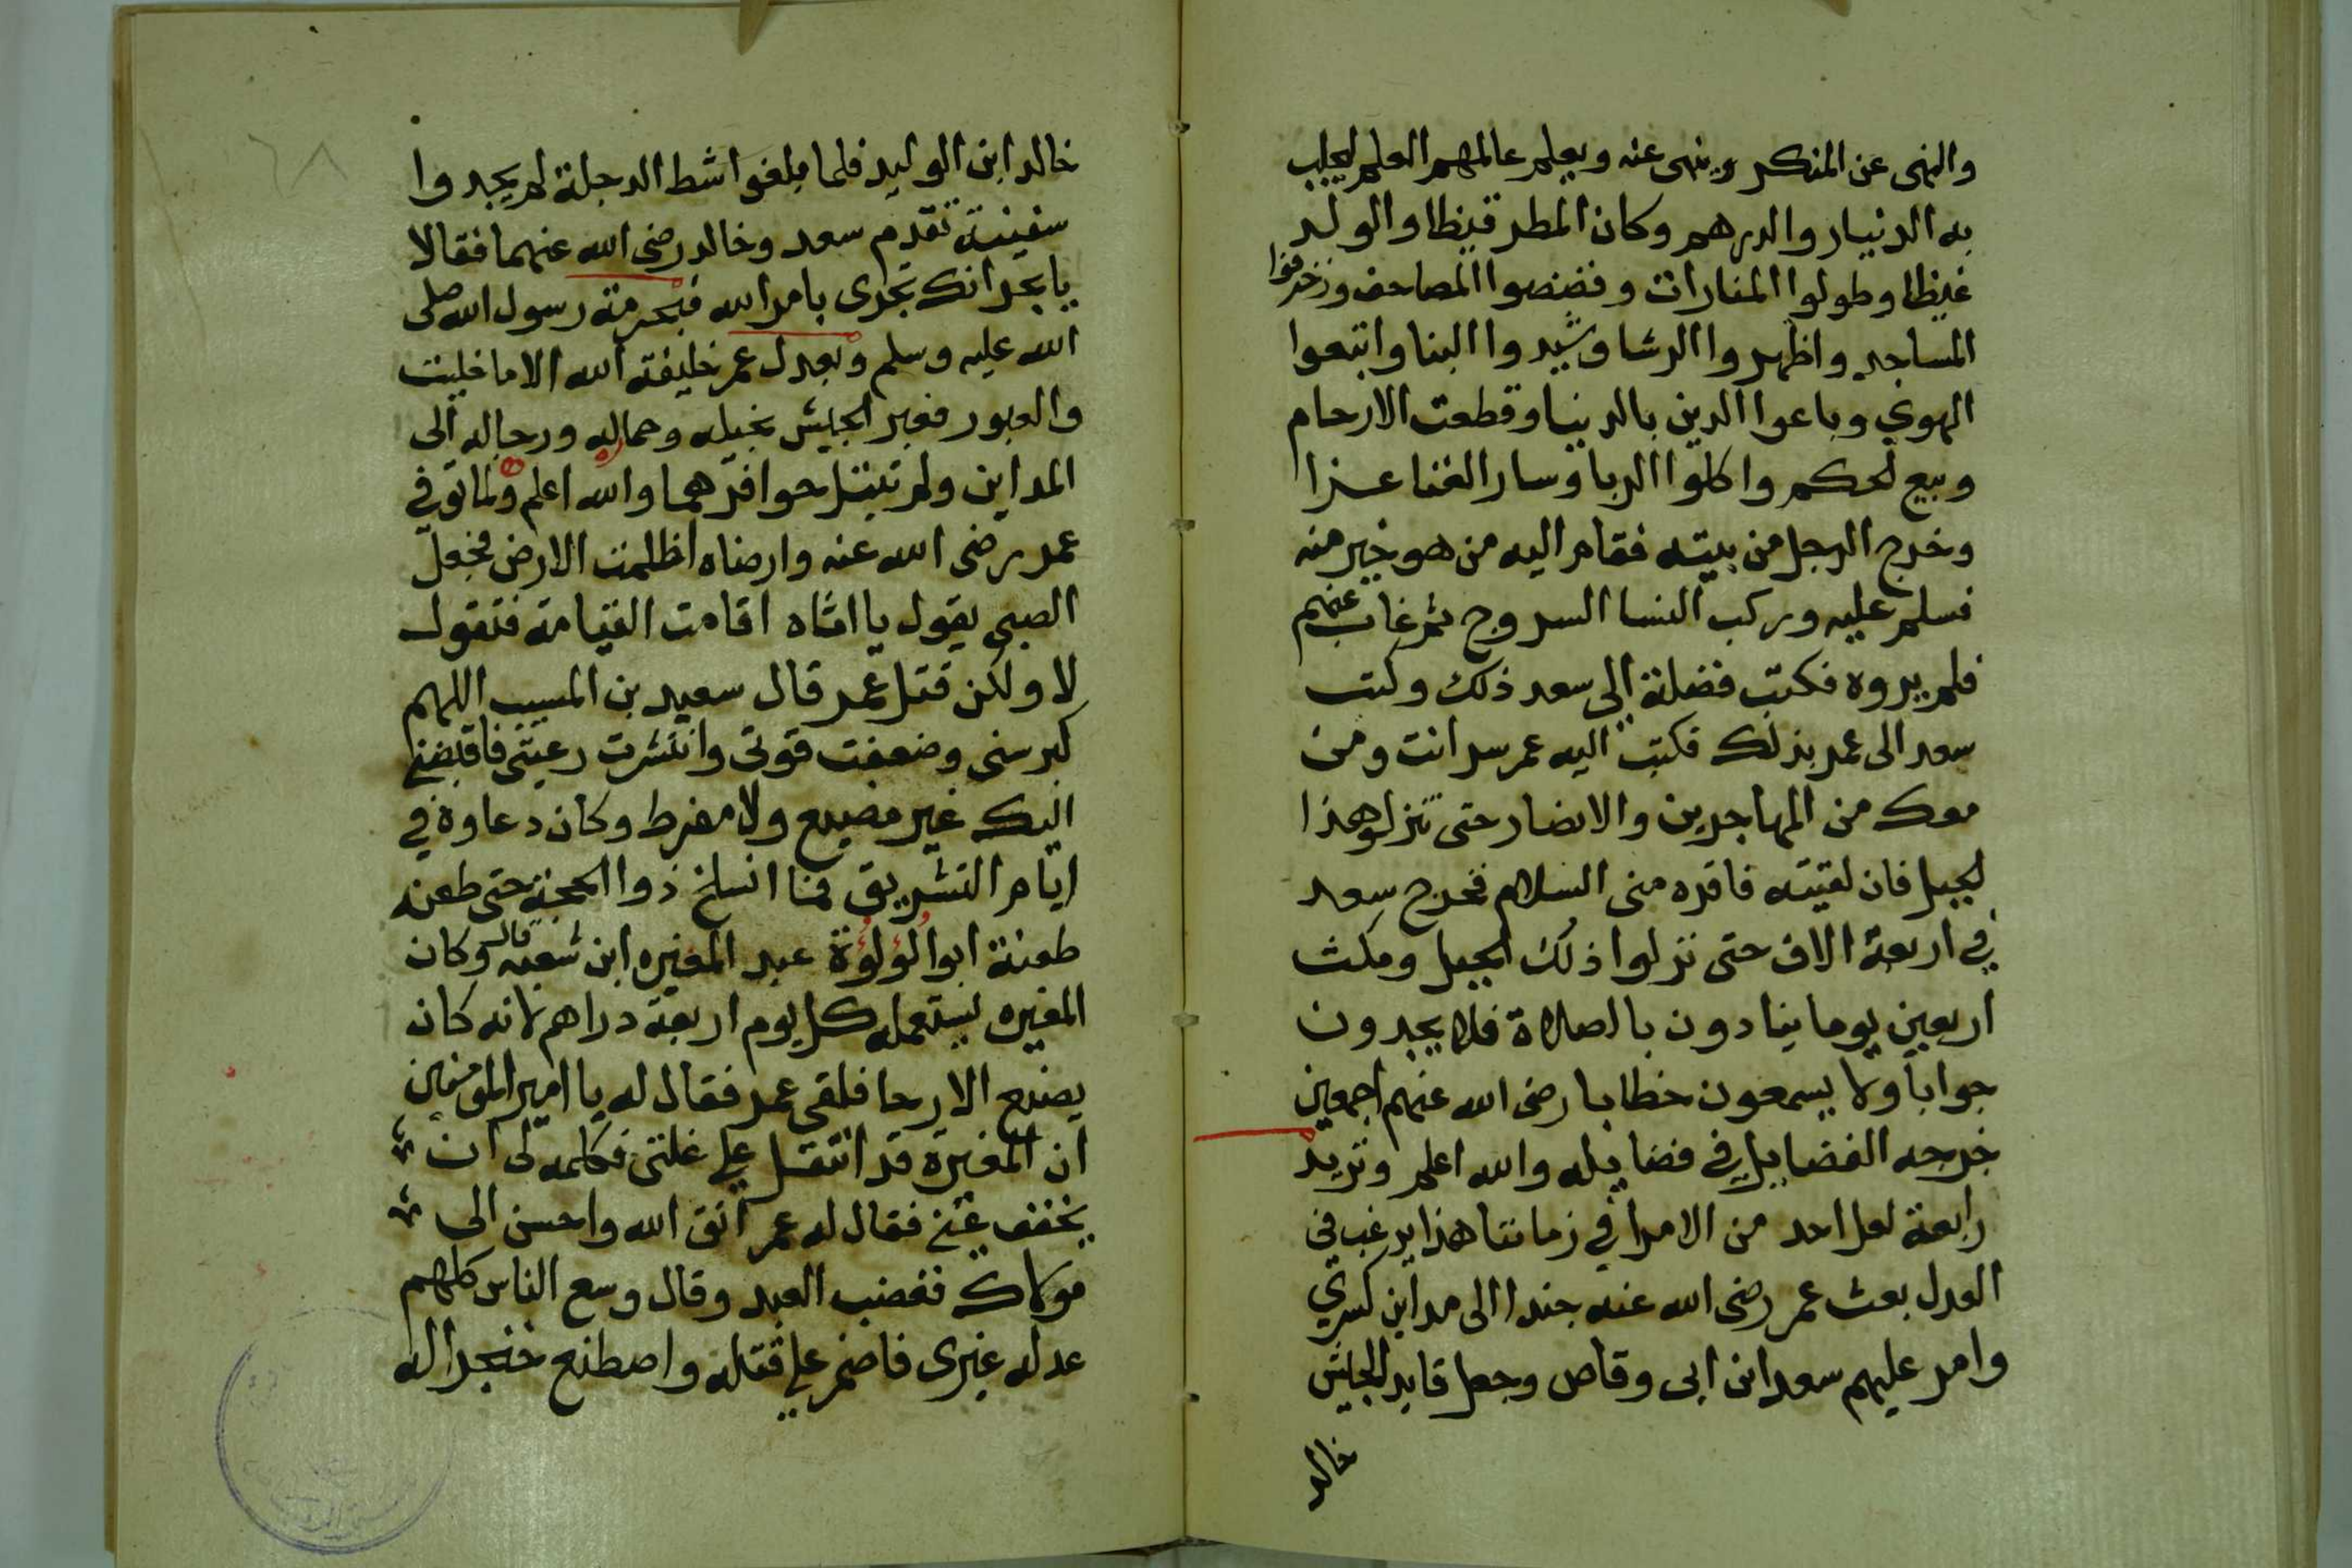 والنهى عن المنكر وينهى عنه ويعلم عالمهم العلم ليجلب
به الدنيار والدرهم وكان المطر قيظا والولد
غيظا وطولوا المنارات وفضضوا المصاحف وزخرفوا
المساجد واظهروا الرشا وشيدوا البنا واتبعوا
الهوي وباعوا الدين بالدنيا وقطعت الارحام
وبيع لحكم واكلوا الربا وسار الغنا عزا
وخرج الرجل من بيته فقام اليه من هو خير منه
فسلم عليه وركب النسا السروج ثم غاب عنهم
فلم يروه فكتب فضلة الى سعد ذلك وكتب
سعد الى عمر بذلك فكتب اليه عمر سر انت ومن
معك من المهاجرين والانصار حتى تنزلو هذا
لجبل فان لقيته فاقره منى السلام فخرج سعد
في اربعة الاف حتى نزلوا ذلك الجبل ومكث
اربعين يوما ينادون بالصلاة فلا يجدون
جوابا ولا يسمعون خطابا رضى الله عنهم اجمعين
خرجه الفضايلى في فضايله والله اعلم ونريد
رابعة لعل احد من الامرا في زماننا هذا يرغب في
العدل بعث عمر رضى الله عنه جندا الى مداين كسري
وامر عليهم سعد ابن ابى وقاص وجعل قايد الجيش
خالد
٦٨
خالد ابن الوليد فلما بلغوا شط الدجلة لم يجدوا
سفينة تقدم سعد وخالد رضى الله عنهما فقالا
يا بحر انك تجرى بامر الله فبحرمة رسول الله صلى
الله عليه وسلم وبعدل عمر خليفة الله الا ما خليت
والعبور فعبر الجيش بخيله وجماله ورحاله الى
المداين ولم تبتل حوافرهما والله اعلم ولما توفي
عمر رضى الله عنه وارضاه اظلمت الارض فجعل
الصبى يقول يا اماه اقامت القيامة فتقول
لا ولكن قتل عمر قال سعيد بن المسيب اللهم
كبر سنى وضعفت قوتى وانتشرت رعيتى فاقبضنى
اليك غير مضيع ولا مفرط وكان دعاوه في
ايام التشريق فما انسلخ ذوا الحجة حتى طعن
طعنة ابوا لؤلؤة عبد المغيره ابن شعبه قال وكان
المغيره يستعمله كل يوم اربعة دراهم لانه كان
يصنع الارحا فلقى عمر فقال له يا امير المؤمنين
ان المغيرة قد اثقل علي غلتى فكلمه لى ان
يخفف عنى فقال له عمر اتق الله واحسن الى
مولاك فغضب العبد وقال وسع الناس كلهم
عدله غيرى فاضمر علي قتله واصطنع خنجرا له